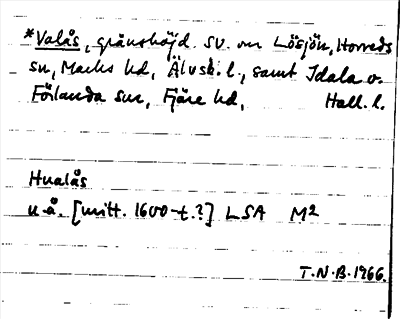 *Valås, gränshöjd SV. om Lösjön, Horreds
sn, Marks hd, Älvsb. l., samt Idala o.
Förlanda snr, Fjäre hd, Hall. l.
Hualås
u.å. [mitt. 1600-t.?] LSA M2
T.N.B. 1966.